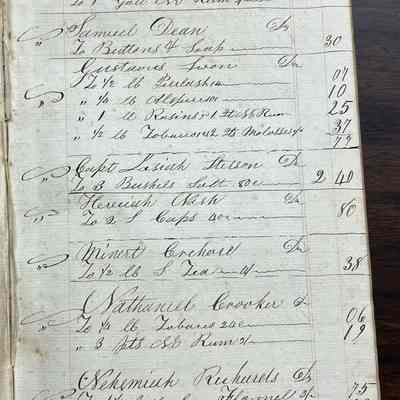 Samuel Dean Dr
To Buttons & Soap 30
Gustavus Swon Dr
To 1/2 lb Perlash 07
" 1/2 lb 10
" 1 lb Raisins 1 qt N E Rum 25
" 1/2 lb Tobacco 2 qts Molasses 37
79
Capt Stetson Dr
To 3 Bushels Salt 80c 2 40
Nash Dr
To 2 S Caps 40c 80
Minert Crehore Dr
To 1/2 lb S Tea 38
Nathaniel Crooker Dr
To 1/4 lb Tobacco 24c 06
" 3 pts N E Rum 19
Nehemiah Richards Dr
Flannel 75